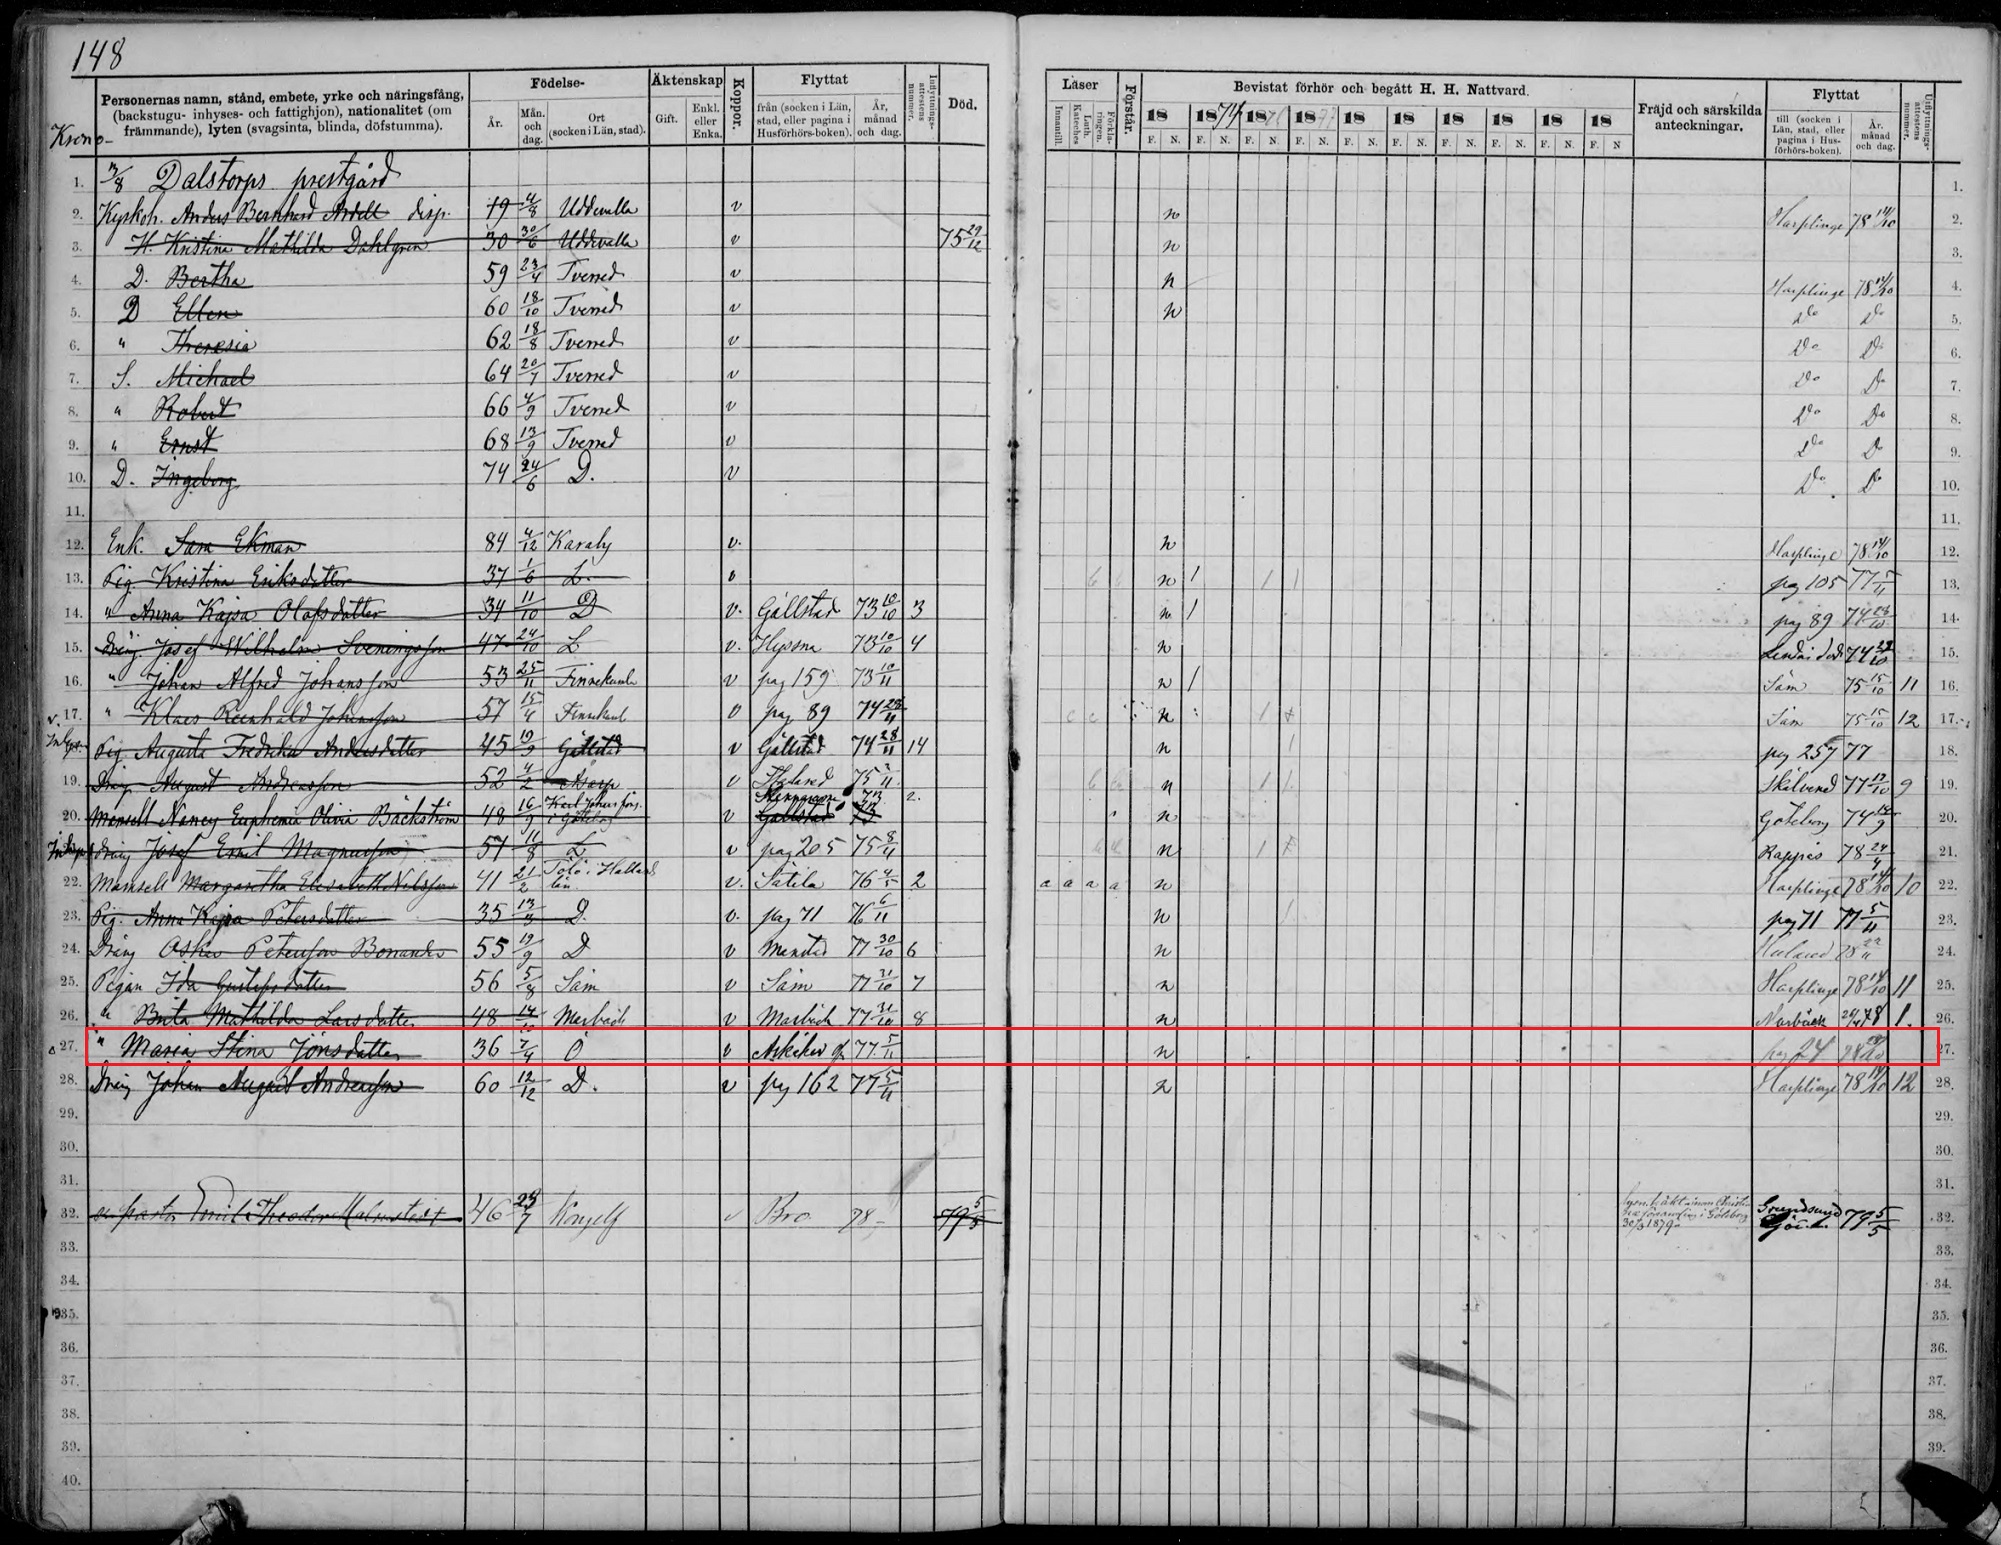 148
Personernas namn, stånd, embete, yrke och näringsfång, (backstugu- inhyses- och fattighjon), nationalitet (om främmande), lyten (svagsinta, blinda, döfstumma).
Födelse-
År.
Mån. och dag.
Ort (socken i Län, stad).
Äktenskap
Gift.
Enkl. eller Enka.
Koppor.
Flyttat
från (socken i Län, stad, eller pagina i Husförhörs-boken).
År, månad och dag.
Inflyttnings-attestens nummer.
Död.
Läser
Innantill.
Luth. Kateches
Förkla-ringen.
Förstår.
Bevistat förhör och begått H. H. Nattvard.
18 1874 1876 1877 18 18 18 18 18 18
F. N. F. N. F. N. F. N. F. N. F. N. F. N. F. N. F. N. F. N
Fräjd och särskilda anteckningar.
Flyttat
till (socken i Län, stad, eller pagina i Hus-förhörs-boken).
År. månad och dag.
Utflyttnings-attestens nummer.
Krono-
1. 3/8 Dalstorps prestgård 1.
2. Kyrkoh. Anders Bernhard Ardell disp. 19 4/8 Uddevalla v n Harplinge 78 14/10 2.
3. H. Kristina Mathilda Dahlgren 30 30/6 Uddevalla v 75 29/12 n 3.
4. D. Bertha 59 23/4 Tvered v n Harplinge 78 14/10 4.
5. D Ellen 60 18/10 Tvered v n Do Do 5.
6. " Theresia 62 18/8 Tvered v Do Do 6.
7. S. Michael 64 20/7 Tvered v Do Do 7.
8. " Robert 66 4/9 Tvered v Do Do 8.
9. " Ernst 68 13/9 Tvered v Do Do 9.
10. D. Ingeborg 74 24/6 D. v Do Do 10.
11. 11.
12. Enk. Sara Ekman 84 4/12 Karaby v. n Harplinge 78 14/10 12.
13. Pig. Kristina Eriksdotter 37 1/6 L. v b n 1 1 1 pag 105 77 5/11 13.
14. " Anna Kajsa Olofsdotter 34 11/10 D v. Gällstad 73 10/10 3 n 1 pag 89 74 28/10 14.
15. Dräng Josef Wilhelm Sveningsson 47 24/10 L v. Hyssna 73 10/10 4 n 74 15.
16. " Johan Alfred Johansson 53 25/11 Finnekumla v pag 159 73 10/11 n 1 Säm 75 15/10 11 16.
17. " Klaes Reinhold Johansson 57 15/4 Finnekuml v pag 89 74 28/11 c c n 1 Säm 75 15/10 12 17.
Pig. Augusta Fredrika Andersdotter 45 19/9 Gällstad v Gällstad 74 28/11 14 n pag 257 77 18.
19. Dräng August Andreasson 52 4/2 Asarp v 75 b n 1 1 Skölvened 77 9 19.
20. Mamsell Nancy Euphemia Olivia Bäckström 48 16/9 Karl Johans förs. i Göteborg v Gällstad 73 2. n Göteborg 74 20.
dräng Josef Emil Magnusson 57 11/8 L v pag 205 75 8/11 n 1 78 24/4 21.
22. Mamsell Margaretha Elisabeth Nilsson 41 21/2 Tölö i Hallands län v. Sätila 76 4/5 2 a a a a n Harplinge 78 14/10 10 22.
23. Pig. Anna Kajsa Petersdotter 35 13/3 D. v. pag 71 76 6/11 n 1 pag 71 77 5/11 23.
24. Dräng Oskar Petersson Bonander 55 19/9 D v 77 30/10 6 n 78 24.
25. Pigan Ida Gustafsdotter 56 5/8 Säm v Säm 77 31/10 7 n Harplinge 78 14/10 11 25.
26. " Brita Mathilda Larsdotter 48 14/10 Marbäck v Marbäck 77 31/10 8 n Marbäck 78 1. 26.
27. " Maria Stina Jonsdotter 36 7/4 Ö v 77 5/11 n pag 24 78 27.
28. Dräng Johan August Andreasson 60 12/12 D. v pag 162 77 5/11 n Harplinge 78 14/10 12 28.
29. 29.
30. 30.
31. 31.
32. v. pastor Emil Theodor Malmstedt 46 28/7 Kongelf v Bro 78 79 5/5 Grundsund 79 5/5 32.
33. 33.
34. 34.
35. 35.
36. 36.
37. 37.
38. 38.
39. 39.
40.